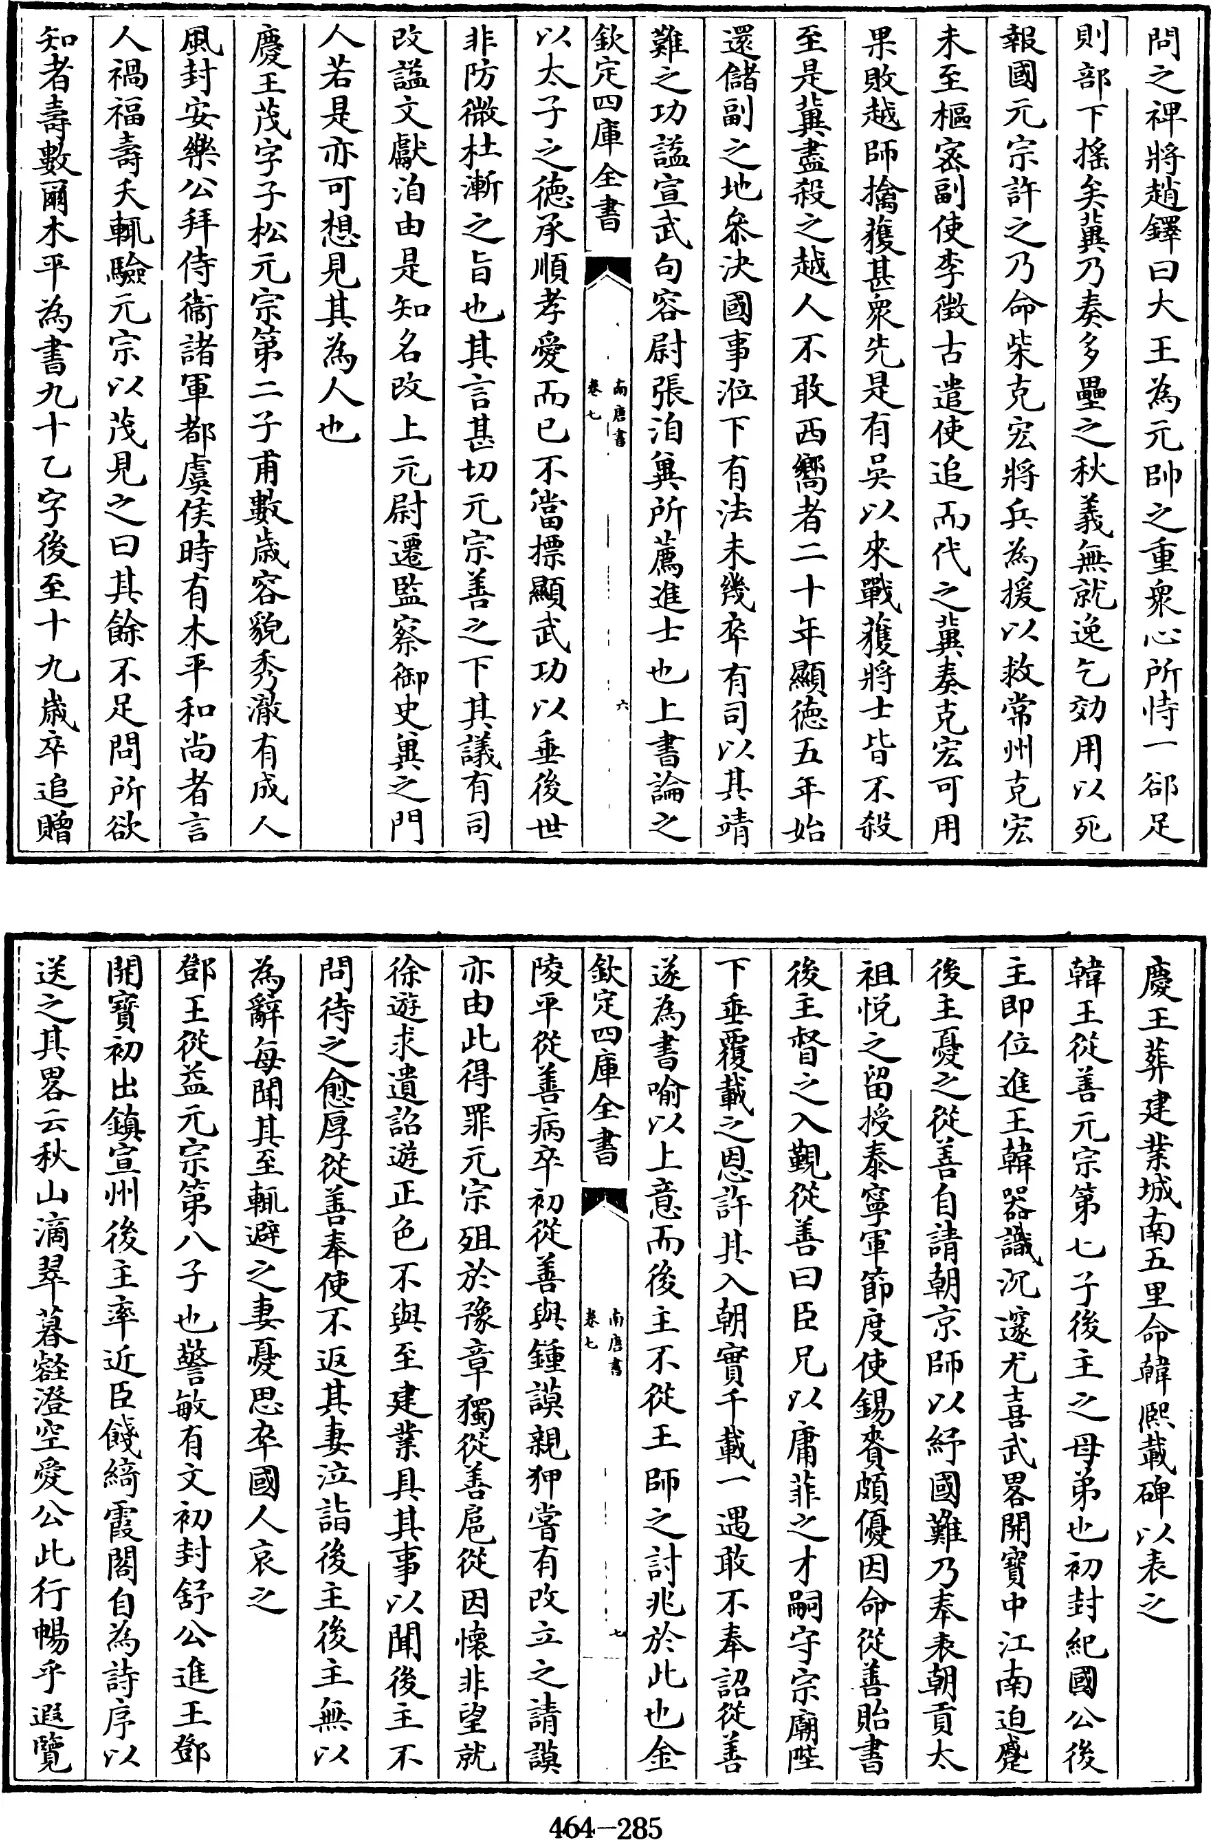 問之裨將趙鐸曰大王為元帥之重衆心所恃一郤足
則部下揺矣冀乃奏多壘之秋義無就逸乞効用以死
報國元宗許之乃命柴克宏將兵為援以救常州克宏
未至樞宻副使李徴古遣使追而代之冀奏克宏可用
果敗越師擒獲甚衆先是有吳以來戰獲將士皆不殺
至是冀盡殺之越人不敢西嚮者二十年顯徳五年始
還儲副之地叅決國事涖下有法未幾卒有司以其靖
難之功諡宣武句容尉張洎冀所薦進士也上書論之
欽定四庫全書
南唐書
卷七
六
以太子之徳承順孝愛而已不當摽顯武功以垂後世
非防微杜漸之旨也其言甚切元宗善之下其議有司
改諡文獻洎由是知名改上元尉遷監察御史冀之門
人若是亦可想見其為人也
慶王茂字子松元宗第二子甫數歳容貌秀澈有成人
風封安樂公拜侍衞諸軍都虞侯時有木平和尚者言
人禍福壽夭輒驗元宗以茂見之曰其餘不足問所欲
知者壽數爾木平為書九十乙字後至十九歳卒追贈
慶王葬建業城南五里命韓熈載碑以表之
韓王從善元宗第七子後主之母弟也初封紀國公後
主即位進王韓器識沉邃尤喜武畧開寳中江南迫蹙
後主憂之從善自請朝京師以紓國難乃奉表朝貢太
祖悦之留授泰寧軍節度使錫賚頗優因命從善貽書
後主督之入覲從善曰臣兄以庸菲之才嗣守宗廟陛
下垂覆載之恩許其入朝實千載一遇敢不奉詔從善
遂為書喻以上意而後主不從王師之討兆於此也金
欽定四庫全書
南唐書
卷七
七
陵平從善病卒初從善與鍾謨親狎嘗有改立之請謨
亦由此得罪元宗殂於豫章獨從善扈從因懐非望就
徐遊求遺詔遊正色不與至建業具其事以聞後主不
問待之愈厚從善奉使不返其妻泣詣後主後主無以
為辭每聞其至輒避之妻憂思卒國人哀之
鄧王從益元宗第八子也警敏有文初封舒公進王鄧
開寳初出鎮宣州後主率近臣餞綺霞閣自為詩序以
送之其畧云秋山滴翠暮壑澄空愛公此行暢乎遐覽
464-285